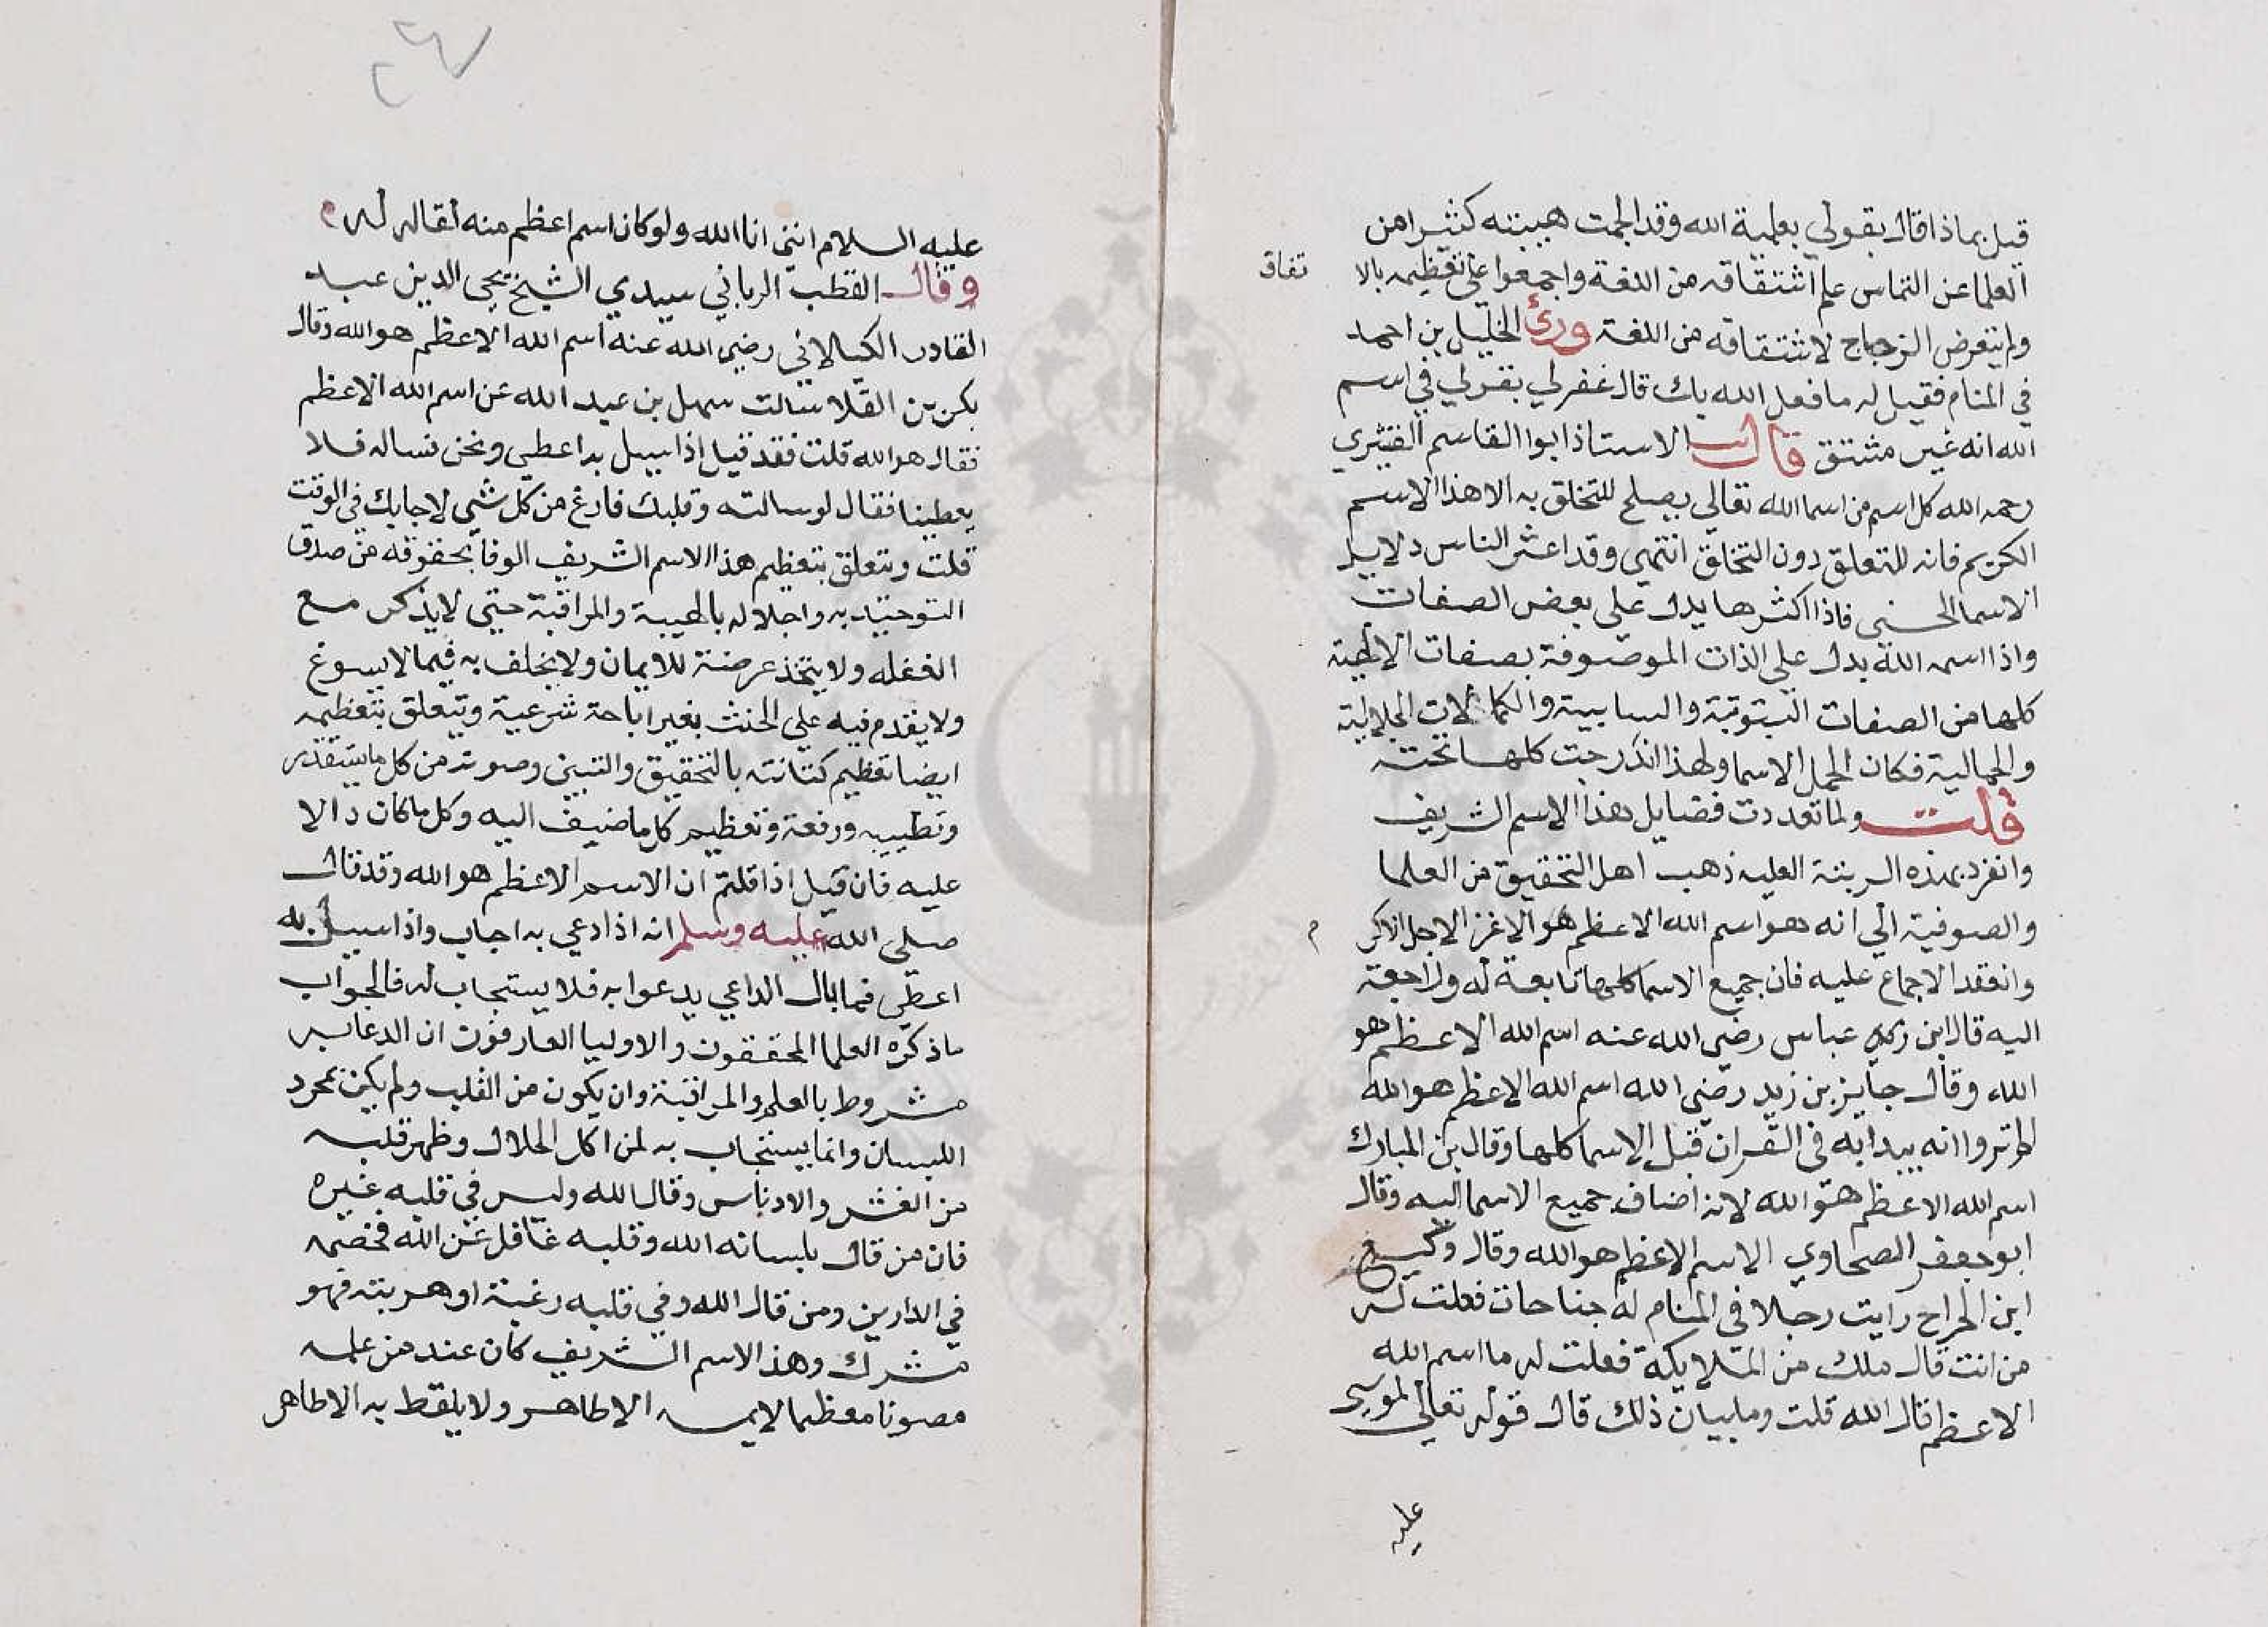 قيل بماذا قال بقولي بعلمية الله وقد الجمت هيبته كثيرا من
العلما عن التماس علم اشتقاقه من اللغة واجمعوا على تعظيمه بالا تفاق
ولم يتعرض الزجاج لاشتقاقه من اللغة ورئ الخليل بن احمد
في المنام فقيل له ما فعل الله بك قال غفرلي بقولي في اسم
الله انه غير مشتق قال الاستاذ ابوا القاسم القشيري
رحمه الله كل اسم من اسما الله تعالي يصلح للتخلق به الا هذا الاسم
الكريم فانه للتعلق دون التخلق انتهي وقد اعشر الناس دلايل
الاسما الحسني فاذا اكثرها يدل علي بعض الصفات
واذا اسمه الله يدل علي الذات الموصوفة بصفات الالهية
كلها من الصفات الثبوتية والسابية والكمالات الجلالية
والجمالية فكان اجمل الاسما ولهذا اندرجت كلها تحته
قلت ولما تعددت فضايل هذا الاسم الشريف
وانفرد بهذه الرتبة العليه ذهب اهل التحقيق من العلما
والصوفية الي انه هو اسم الله الاعظم هو الاعز الاجل الاكر م
وانعقد الاجماع عليه فان جميع الاسما كلها تابعة له وراجعة
اليه قال ابن عباس رضي الله عنه اسم الله الاعظم هو
الله وقال جايز بن زيد رضي الله اسم الله الاعظم هو الله
الم تروا انه يبدا به في القران قبل الاسما كلها وقال بن المبارك
اسم الله الاعظم هو الله لانه اضاف جميع الاسما اليه وقال
ابو جعفر الصحاوي الاسم الاعظم هو الله وقال وكيع
ابن الجراح رايت رجلا في المنام له جناحان فعلت له
من انت قال ملك من الملايكة فعلت له ما اسم الله
الاعظم قال الله قلت وما بيان ذلك قال قوله تعالي لموسي
عليه
عليه السلام انني انا الله ولو كان اسم اعظم منه لقاله له
وقال القطب الرباني سيدي الشيخ محي الدين عبد
القادر الكيلاني رضي الله عنه اسم الله الاعظم هو الله وقال
بكر بن القلا سالت سهل بن عبد الله عن اسم الله الاعظم
فقال هو الله قلت فقد قيل اذا سيل به اعطي ونحن نساله فلا
يعطينا فقال لو سالته وقلبك فارغ من كل شي لاجابك في الوقت
قلت ويتعلق بتعظيم هذا الاسم الشريف الوفا بحقوقه من صدق
التوحيد به واجلاله بالهيبة والمراقبة حتي لا يذكر مع
الغفله ولا يتخذ عرضة للايمان ولا يحلف به فيما لا يسوغ
ولا يقدم فيه علي الحنث بغير اباحة شرعية ويتعلق بتعظيمه
ايضا تعظيم كتابته بالتحقيق والتبين وصونه من كل ما يستقذر
وتطييبه ورفعة وتعظيم كل ما ضيف اليه وكل ما كان دالا
عليه فان قيل اذا قلتم ان الاسم الاعظم هو الله وقد قال
صلي الله عليه وسلم انه اذا دعي به اجاب واذا سيل به
اعطي فما بال الداعي يدعوا به فلا يستجاب له فالجواب
ماذكره العلما المحققون والاوليا العارفون ان الدعا به
مشروط بالعلم والمراقبة وان يكون من القلب ولم يكن بمجرد
اللسان وانما يستجاب به لمن اكل الحلال وظهر قلبه
من الغش والادناس وقال الله وليس في قلبه غيره
فان من قال بلسانه الله وقلبه غافل عن الله فخصمه
في الدارين ومن قال الله وفي قلبه رغبة او هربته فهو
مشرك وهذا الاسم الشريف كان عند من علمه
مصونا معظما لا يمسه الا طاهر ولا يلقظ به الا طاهر